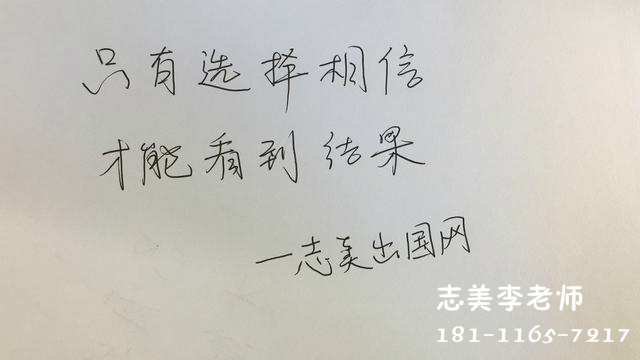 只有选择相信
才能看到结果
一志美出国网
志美李老师
181-1165-7217